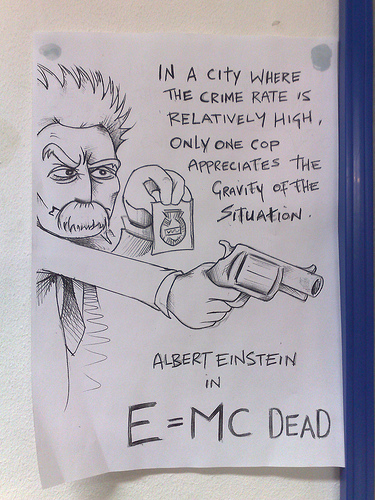 IN A CITY WHERE
THE CRIME RATE IS
RELATIVELY HIGH,
ONLY ONE COP
APPRECIATES THE
GRAVITY OF THE
SITUATION.
ALBERT EINSTEIN
IN
E=MC DEAD